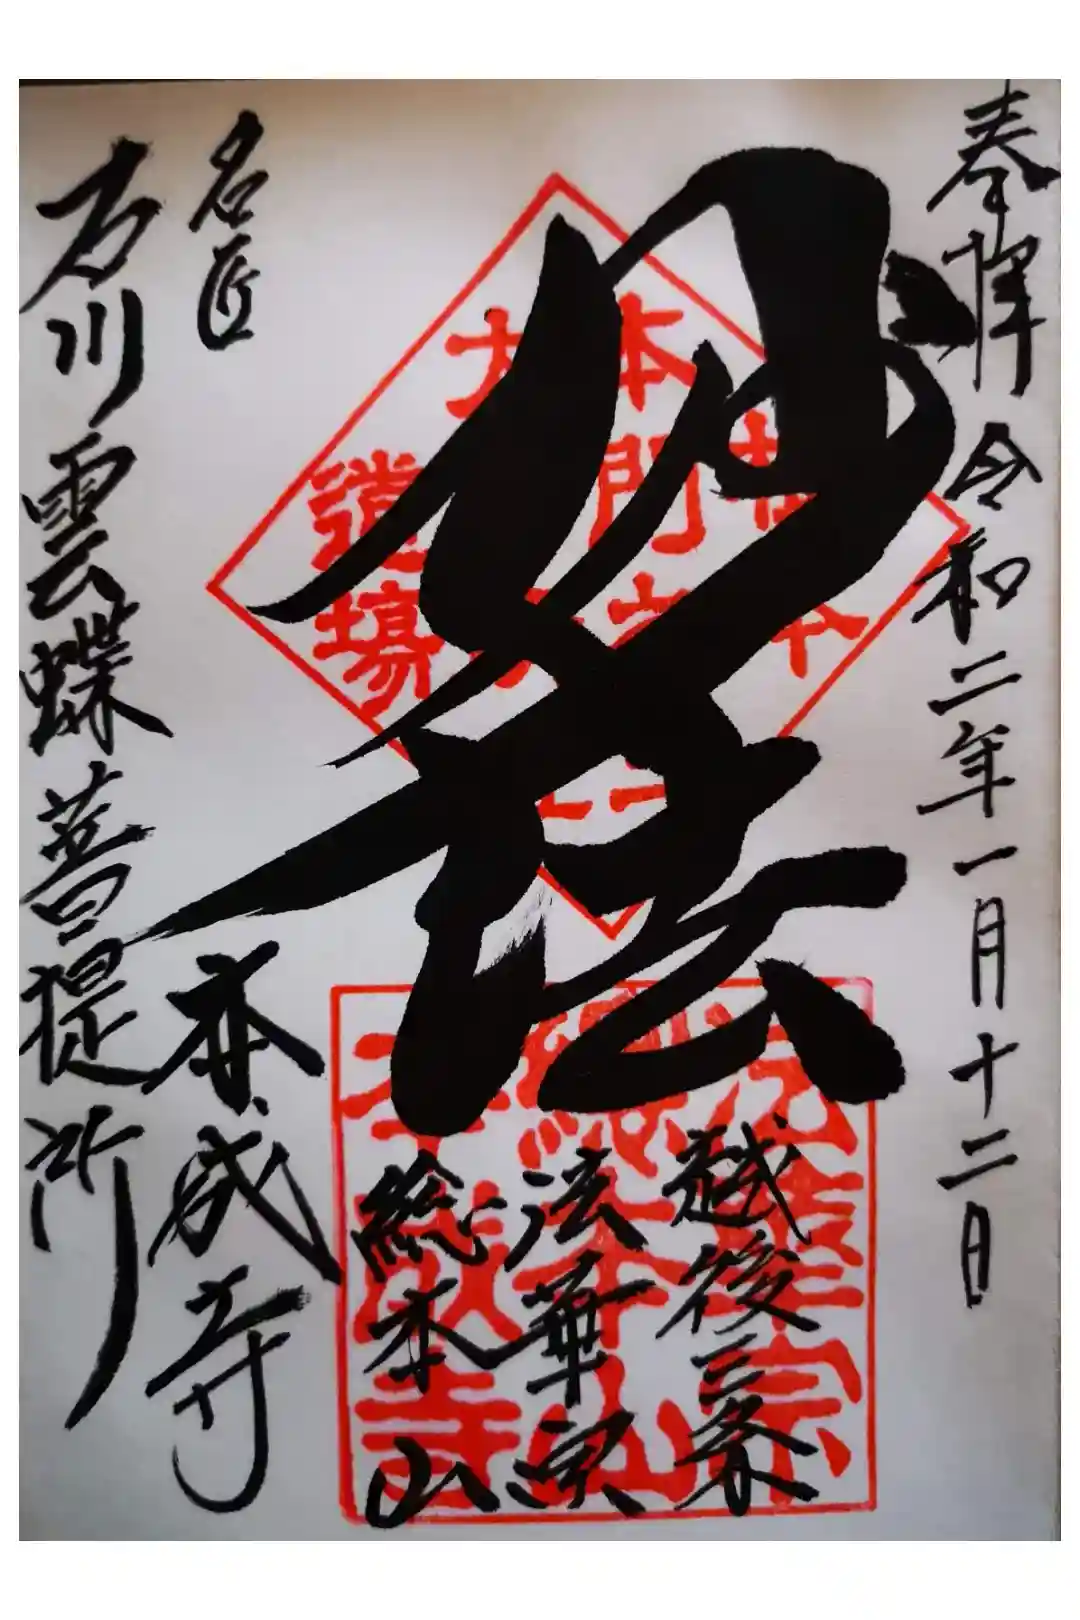 奉拝 令和二年一月十二日
妙法
越後三条
法華宗
総本山
本成寺
名匠
石川雲蝶菩提所
道場
法華宗
總本山
本成寺